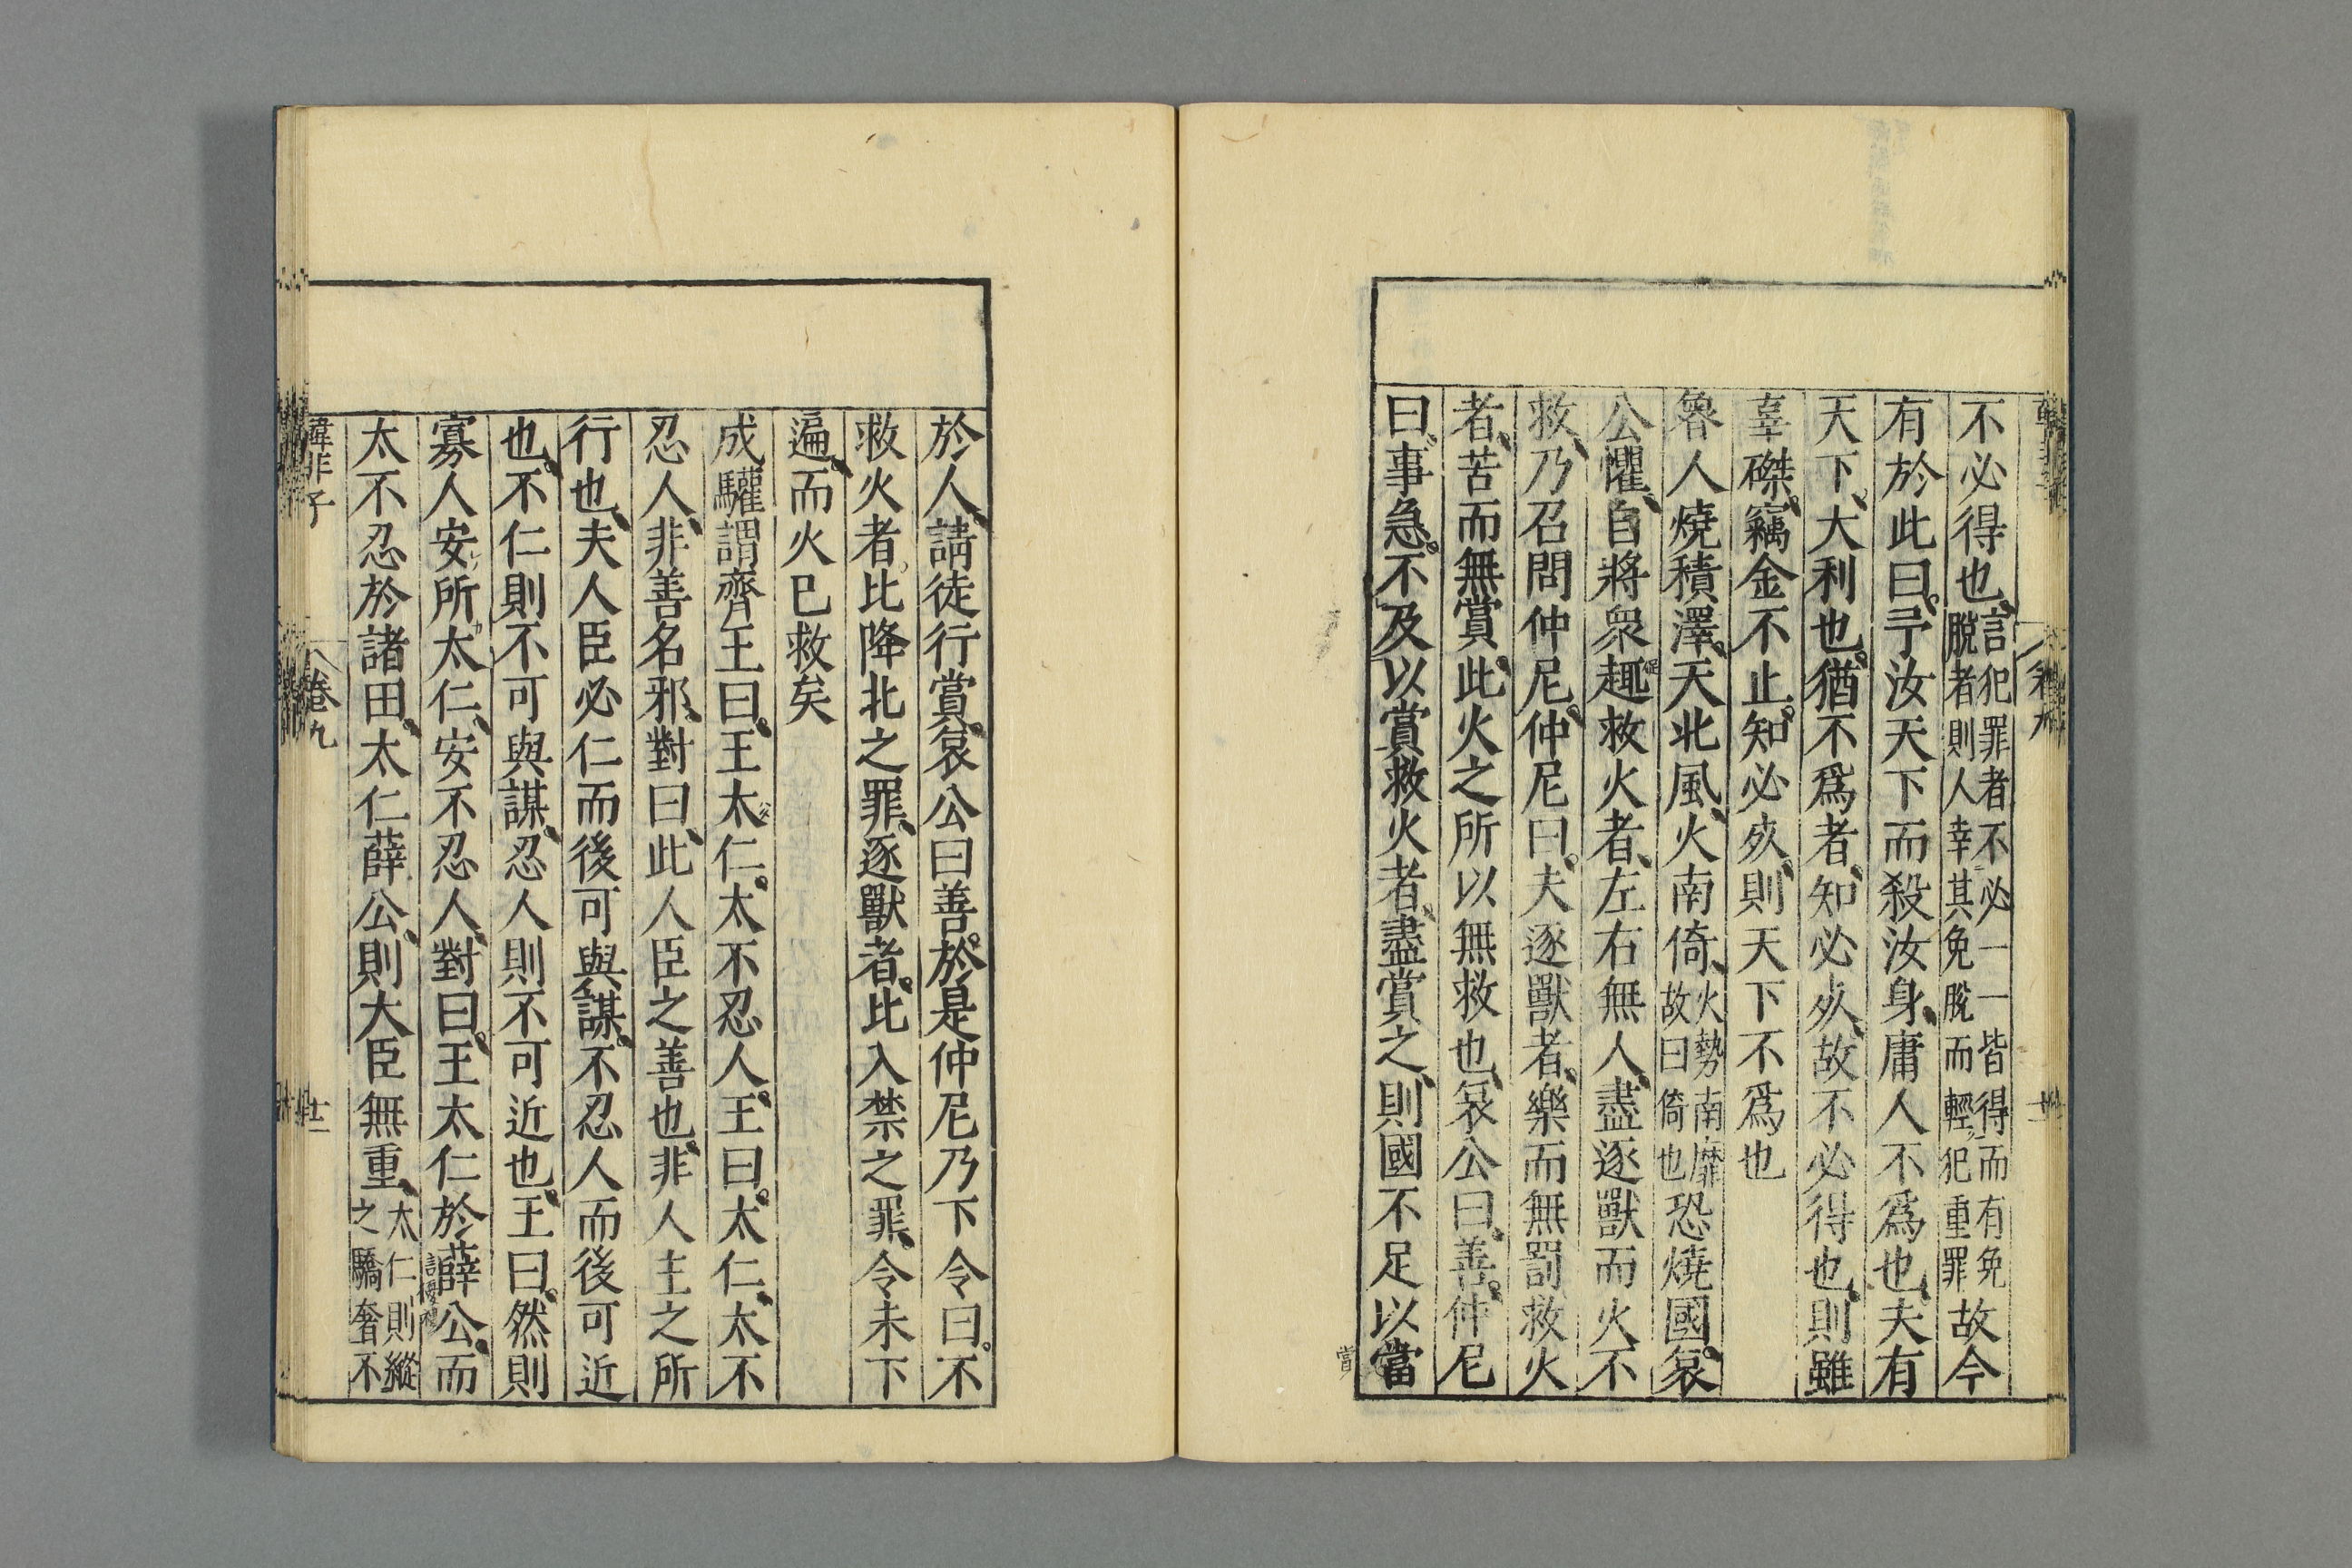 不必得也言犯罪者不必一一皆得而有免脫者則人幸其免脫而輕犯重罪故今
有於此曰予汝天下而殺汝身庸人不爲也夫有
天下大利也猶不爲者知必死故不必得也則雖
辜磔竊金不止知必死則天下不爲也
魯人燒積澤天北風火南倚火勢南靡故曰倚也恐燒國哀
公懼自將衆趣救火者左右無人盡逐獸而火不
救乃召問仲尼仲尼曰夫逐獸者樂而無罰救火
者苦而無賞此火之所以無救也哀公曰善仲尼
曰事急不及以賞救火者盡賞之則國不足以當
嘗
於人請徒行賞哀公曰善於是仲尼乃下令曰不
救火者比降北之罪逐獸者比入禁之罪令未下
遍而火已救矣
成驩謂齊王曰王太仁太不忍人王曰太仁太不
忍人非善名邪對曰此人臣之善也非人主之所
行也夫人臣必仁而後可與謀不忍人而後可近
也不仁則不可與謀忍人則不可近也王曰然則
寡人安所太仁安不忍人對曰王太仁於薛公而
太不忍於諸田太仁薛公則大臣無重太仁則縱之驕奢不
韓非子 卷九 十二